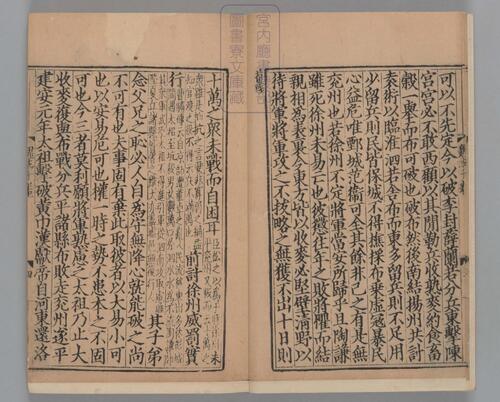 宮内廳書陵部
圖書寮文庫藏
可以不先定今以破李封薛蘭若分兵東擊陳
宮宮必不敢西顧以其間勒兵收熟麥約食畜
穀一舉而布可破也破布然後南結揚州共討
袁術以臨淮泗若舍布而東多留兵則不足用
少留兵則民皆保城不得樵採布乘虛寇暴民
心益危唯鄄城范衛可全其餘非己之有是無
兖州也若徐州不定將軍當安所歸乎且陶謙
雖死徐州未易亡也彼懲往年之敗將懼而結
親相為表裏今東方皆以收麥必堅壁清野以
待將軍將軍攻之不拔略之無獲不出十日則
十萬之衆未戰而自困耳
前討徐州威罰實
行
其子弟
念父兄之恥必人自為守無降心就能破之尚
不可有也夫事固有棄此取彼者以大易小可
也以安易危可也權一時之勢不患本之不固
可也今三者莫利願將軍熟慮之太祖乃止大
收麥復與布戰分兵平諸縣布敗走兖州遂平
建安元年太祖擊破黃巾漢獻帝自河東還洛